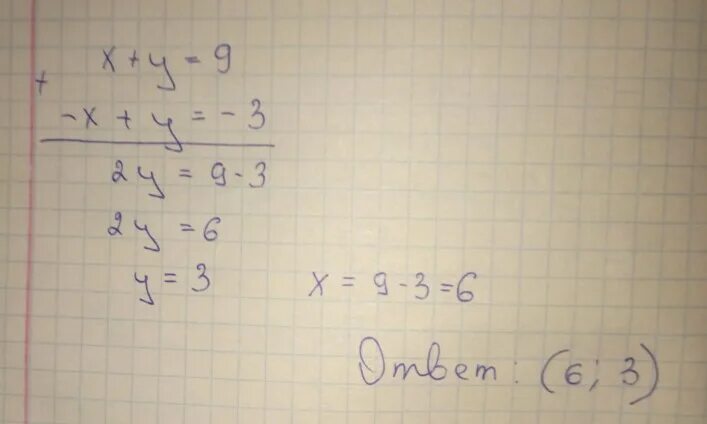 x + y = 9
+
-x + y = -3
2y = 9 - 3
2y = 6
y = 3
x = 9 - 3 = 6
Ответ: (6; 3)